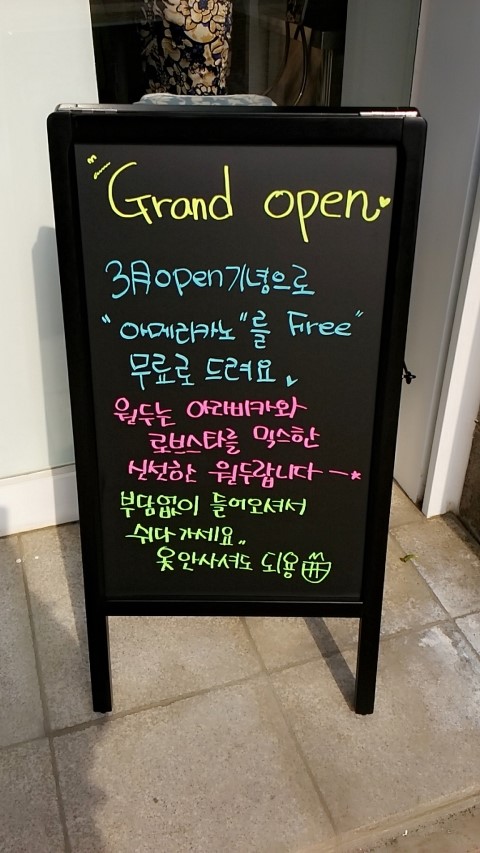 "Grand open
3月open기념으로
"아메리카노"를 Free"
무료로 드려요
원두는 아라비카와
로브스타를 믹스한
신선한 원두랍니다~*
부담없이 들어오셔서
쉬다가세요..
옷안사셔도 되용